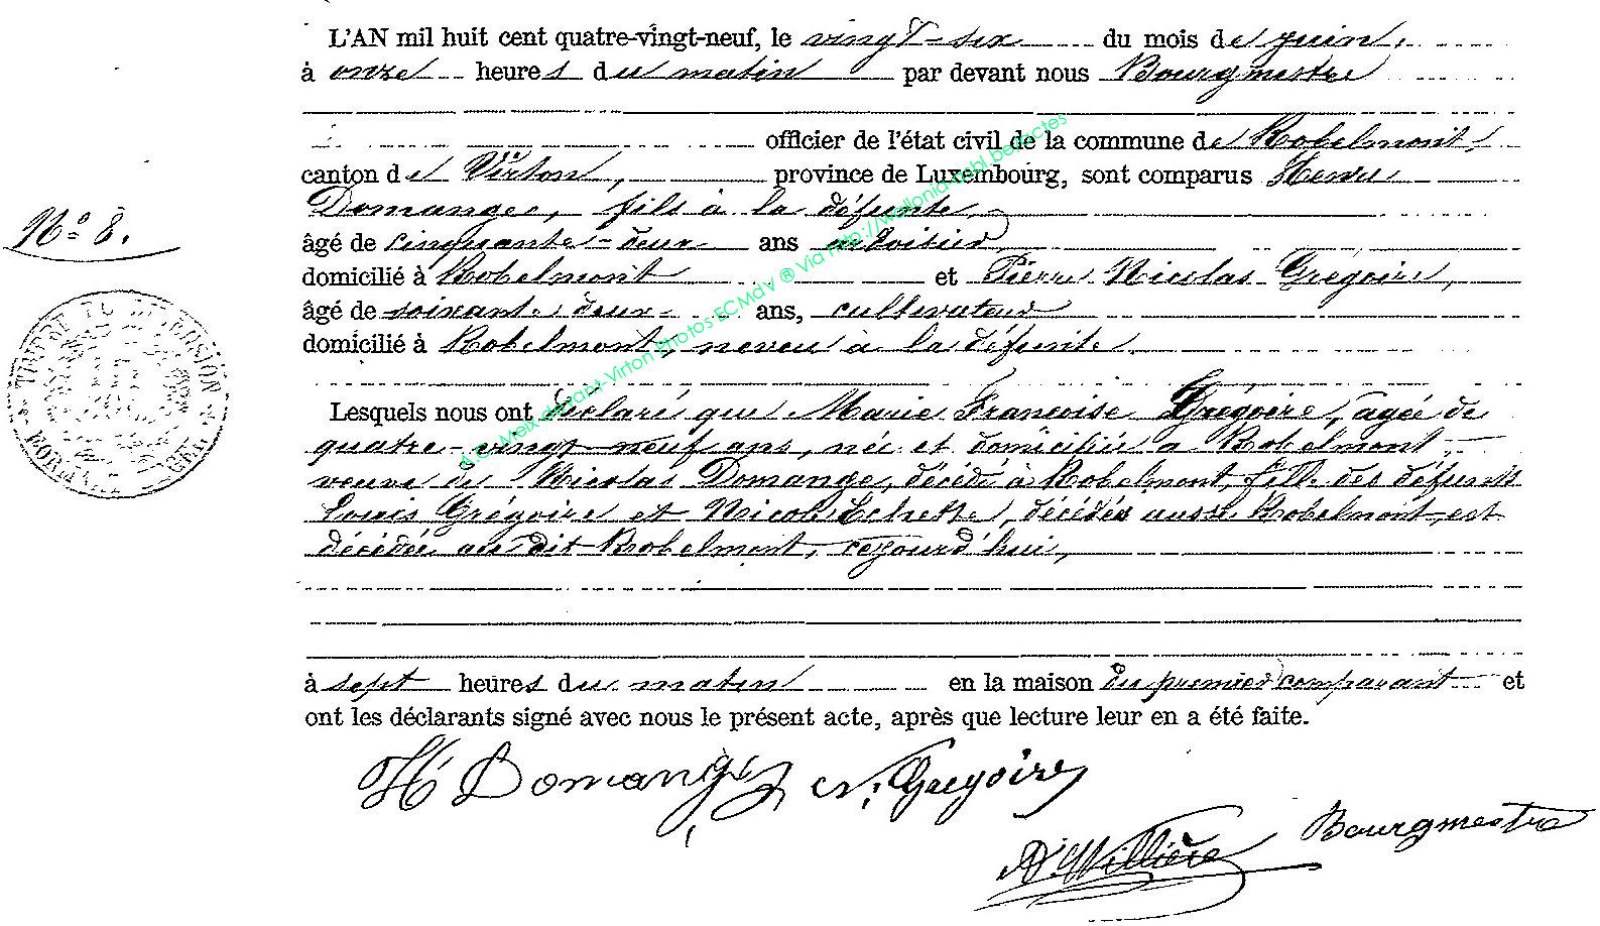 L'AN mil huit cent quatre-vingt-neuf, le vingt-six du mois de juin,
à onze heures du matin par devant nous Bourgmestre
officier de l'état civil de la commune de Robelmont,
canton de Virton, province de Luxembourg, sont comparus Henri
Domange, fils à la défunte,
N° 8.
âgé de cinquante-deux ans
domicilié à Robelmont et Pierre Nicolas Grégoire,
âgé de soixante deux ans, cultivateur
domicilié à Robelmont, neveu à la défunte
Lesquels nous ont déclaré que Marie Françoise Grégoire, agée de
quatre-vingt-neuf ans, née et domiciliée a Robelmont,
veuve de Nicolas Domange, décédé à Robelmont, fille des défunts
Louis Grégoire et Nicole, décédés aussi Robelmont, est
décédée au dit Robelmont, cejourd'hui,
à sept heures du matin en la maison du premier comparant et
ont les déclarants signé avec nous le présent acte, après que lecture leur en a été faite.
H Domange N. Gregoire
Willière Bourgmestre
TIMBRE DE DIMENSION
A.C. Meix-devant-Virton Photos ECMdV ® Via http://wallonia-asbl.be/actes